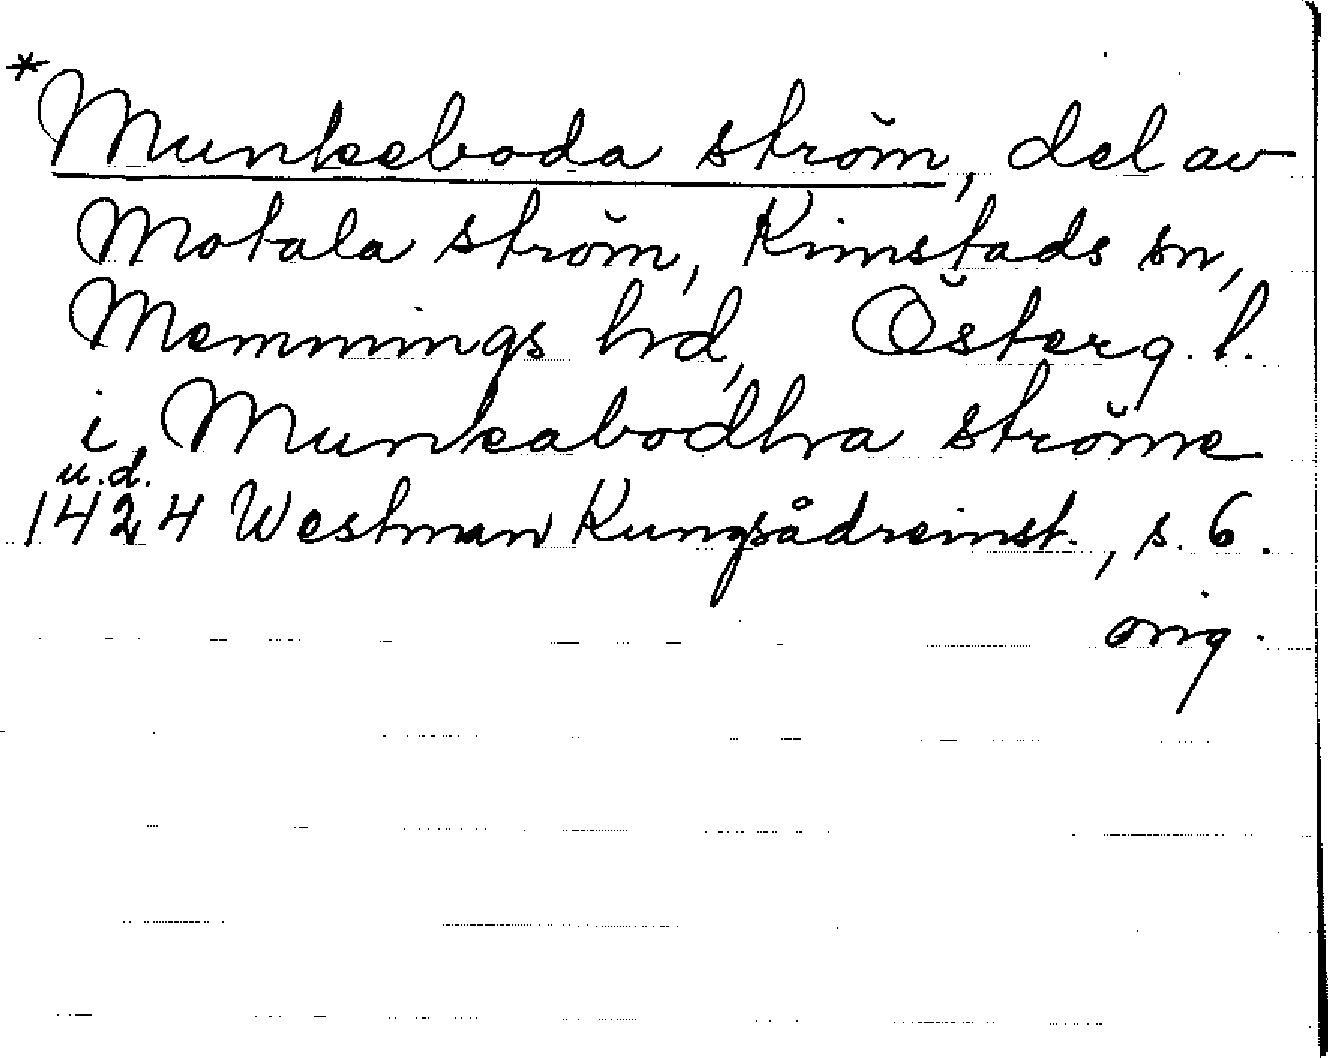 *Munkeboda ström, del av
Motala ström, Kimstads sn,
Memmings hd, Österg. l.
i Munkabodha ströme
u.d.
1424 Westman Kungsådreinst., s. 6.
orig.